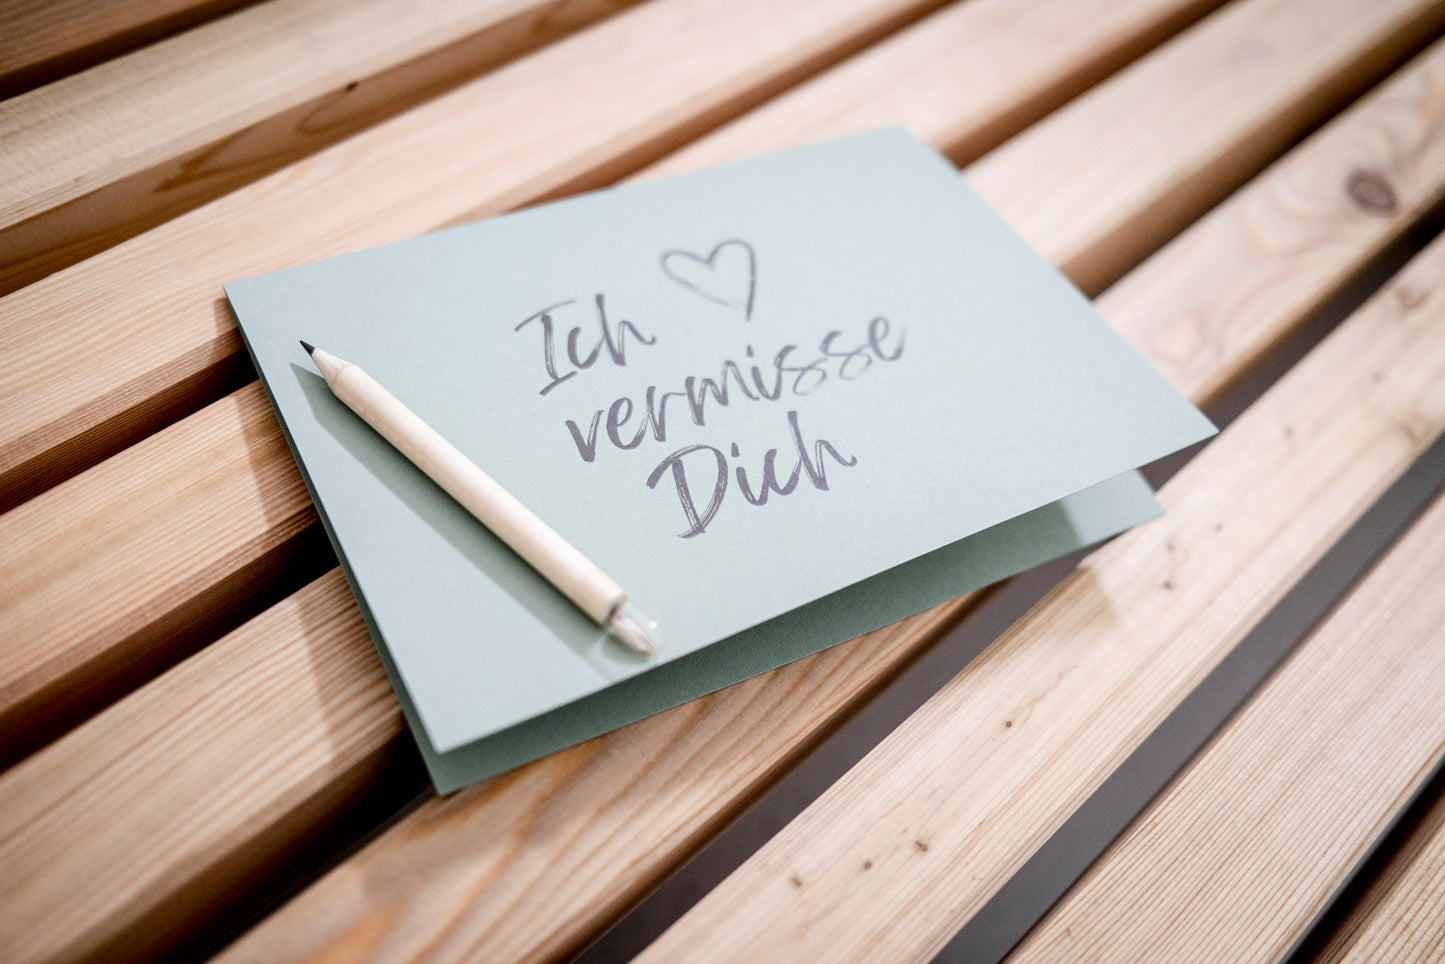 Ich
vermisse
Dich